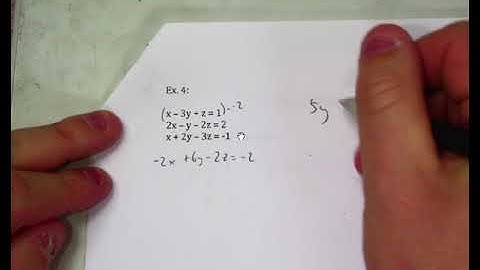 Ex. 4:
(x – 3y + z = 1) · -2
2x – y – 2z = 2
x + 2y – 3z = -1
-2x + 6y - 2z = -2
5y